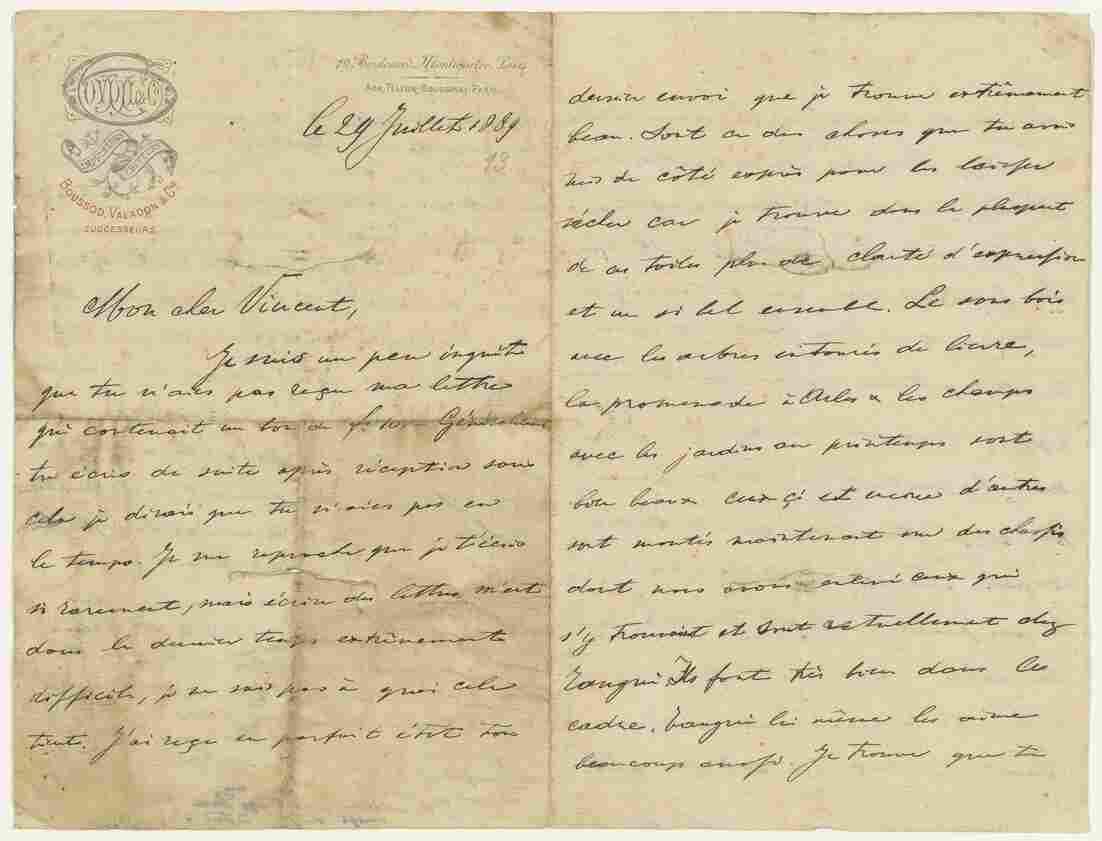 GOUPIL & Cie
BOUSSOD, VALADON & Cie
SUCCESSEURS
19, Boulevard Montmartre, Paris
ADR. TELEGR. BOUSSOVAL-PARIS
le 29 Juillet 1889
13
Mon cher Vincent,
Je suis un peu inquiet
que tu n'aies pas reçu ma lettre
qui contenait un bon de fr. 10. Généralement
tu écris de suite après réception sans
cela je dirais que tu n'aies pas eu
le temps. Je me reproche que je t'écris
si rarement, mais écrire des lettres m'est
dans le dernier temps extrêmement
difficile, je ne sais pas à quoi cela
tient. J'ai reçu en parfait état ton
dernier envoi que je trouve extrêmement
beau. Sont ce des choses que tu avais
mis de côté exprès pour les laisser
sécher car je trouve dans la plupart
de ces toiles plus de clarté d'expression
et un si bel ensemble. Le sous bois
avec les arbres entourés de lierre,
la promenade à Arles & les champs
avec les jardins au printemps sont
bien beaux ceux çi et encore d'autres
sont montés maintenant sur des chassis
dont nous avons enlevé ceux qui
s'y trouvait et sont actuellement chez
Tanguy. Ils font très bien dans les
cadre. Tanguy lui même les aime
beaucoup aussi. Je trouve que tu